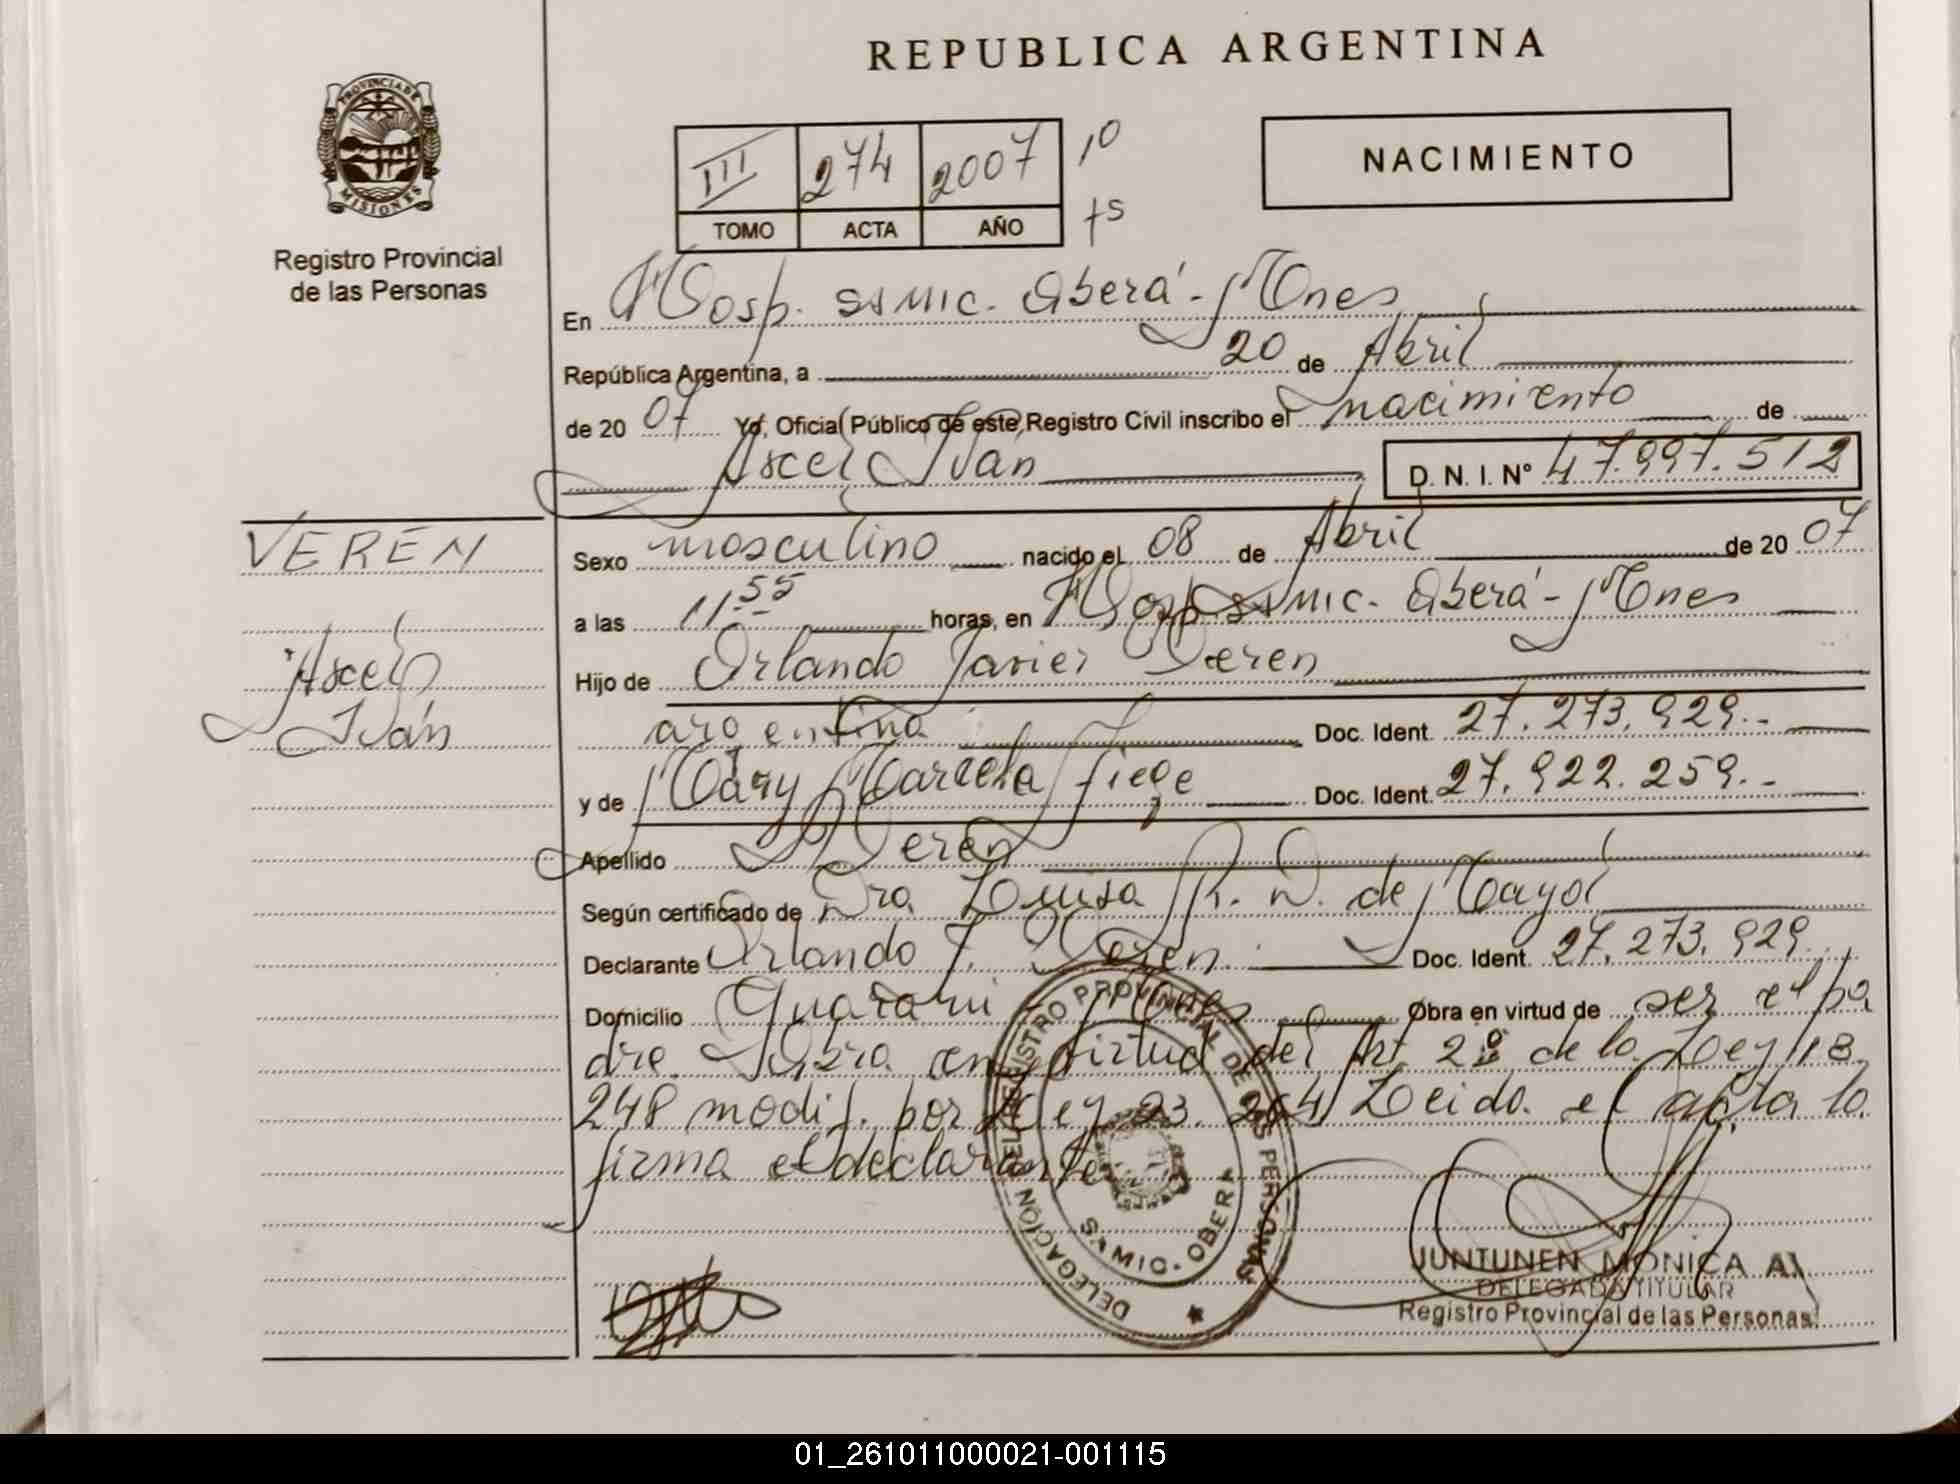 REPUBLICA ARGENTINA
PROVINCIA DE
MISIONES
Registro Provincial
de las Personas
III 274 2007 10
TOMO ACTA AÑO 75
NACIMIENTO
En Hosp. SAMIC. Oberá - Mnes
República Argentina, a 20 de Abril
de 2007 Yo, Oficial Público de este Registro Civil inscribo el nacimiento de
Axcel Iván D. N. I. N° 47.997.512
VEREN
Axcel
Iván
Sexo masculino nacido el 08 de Abril de 2007
a las 11.55 horas, en Hosp. SAMIC. Oberá - Mnes
Hijo de Orlando Javier Veren
argentina Doc. Ident. 27.273.929.-
y de Mary Marcela Fiege Doc. Ident. 27.922.259.-
Apellido Veren
Según certificado de Dra. Luisa R. D. de Mayol
Declarante Orlando J. Veren. Doc. Ident. 27.273.929.
Domicilio Guaraní Mnes Obra en virtud de ser el pa
dre. Obra en virtud del Art. 2º de la Ley 18.
248 modif. por Ley 23.264 Leido el acta la
firma el declarante
DELEGACIÓN DEL REGISTRO PROVINCIAL DE LAS PERSONAS
SAMIC. OBERA
JUNTUNEN MONICA A.
DELEGADA TITULAR
Registro Provincial de las Personas
01_261011000021-001115